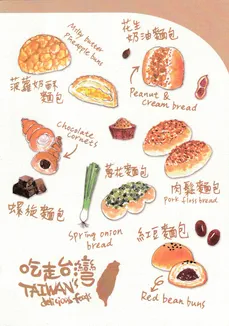 Milky butter
Pineapple buns
菠蘿奶酥
麵包
花生
奶油麵包
Peanut &
cream bread
Chocolate
cornets
螺旋麵包
蔥花麵包
Spring onion
bread
肉鬆麵包
Pork floss bread
紅豆麵包
Red bean buns
吃走台灣
TAIWAN's
delicious food